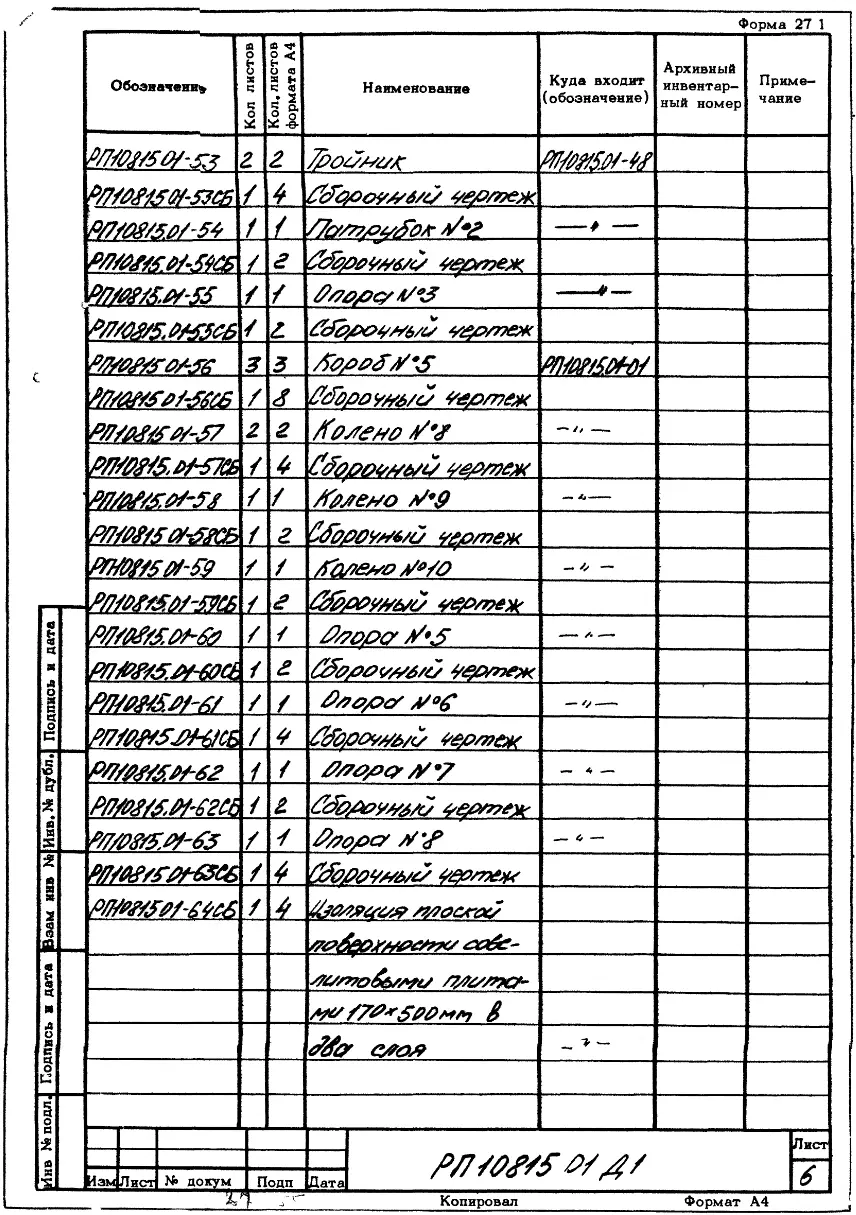 Форма 27 1
Обозначение Кол листов Кол, листов формата А4 Наименование Куда входит (обозначение) Архивный инвентарный номер Примечание
РП10815 01-53 2 2 Тройник РП10815.01-48
РП10815 01-53СБ 1 4 Сборочный чертеж
РП10815.01-54 1 1 Патрубок №2 — " —
РП10815.01-54СБ 1 2 Сборочный чертеж
РП10815.01-55 1 1 Опора №3 — " —
РП10815.01-55СБ 1 2 Сборочный чертеж
РП10815 01-56 3 3 Короб №5 РП10815.01-01
РП10815 01-56СБ 1 8 Сборочный чертеж
РП10815 01-57 2 2 Колено №8 — " —
РП10815.01-57СБ 1 4 Сборочный чертеж
РП10815.01-58 1 1 Колено №9 — " —
РП10815 01-58СБ 1 2 Сборочный чертеж
РП10815 01-59 1 1 Колено №10 — " —
РП10815.01-59СБ 1 2 Сборочный чертеж
РП10815.01-60 1 1 Опора №5 — " —
РП10815.01-60СБ 1 2 Сборочный чертеж
РП10815.01-61 1 1 Опора №6 — " —
РП10815.01-61СБ 1 4 Сборочный чертеж
РП10815.01-62 1 1 Опора №7 — " —
РП10815.01-62СБ 1 2 Сборочный чертеж
РП10815.01-63 1 1 Опора №8 — " —
РП10815 01-63СБ 1 4 Сборочный чертеж
РП10815 01-64СБ 1 4 Изоляция плоской
поверхности сове-
литовыми плита-
ми 170×500мм в
два слоя — " —
Подпись и дата
Инв. № дубл.
Взам инв №
Подпись и дата
Инв № подл.
РП10815 01 Д1
Лист
6
Изм Лист № докум Подп Дата
Копировал Формат А4